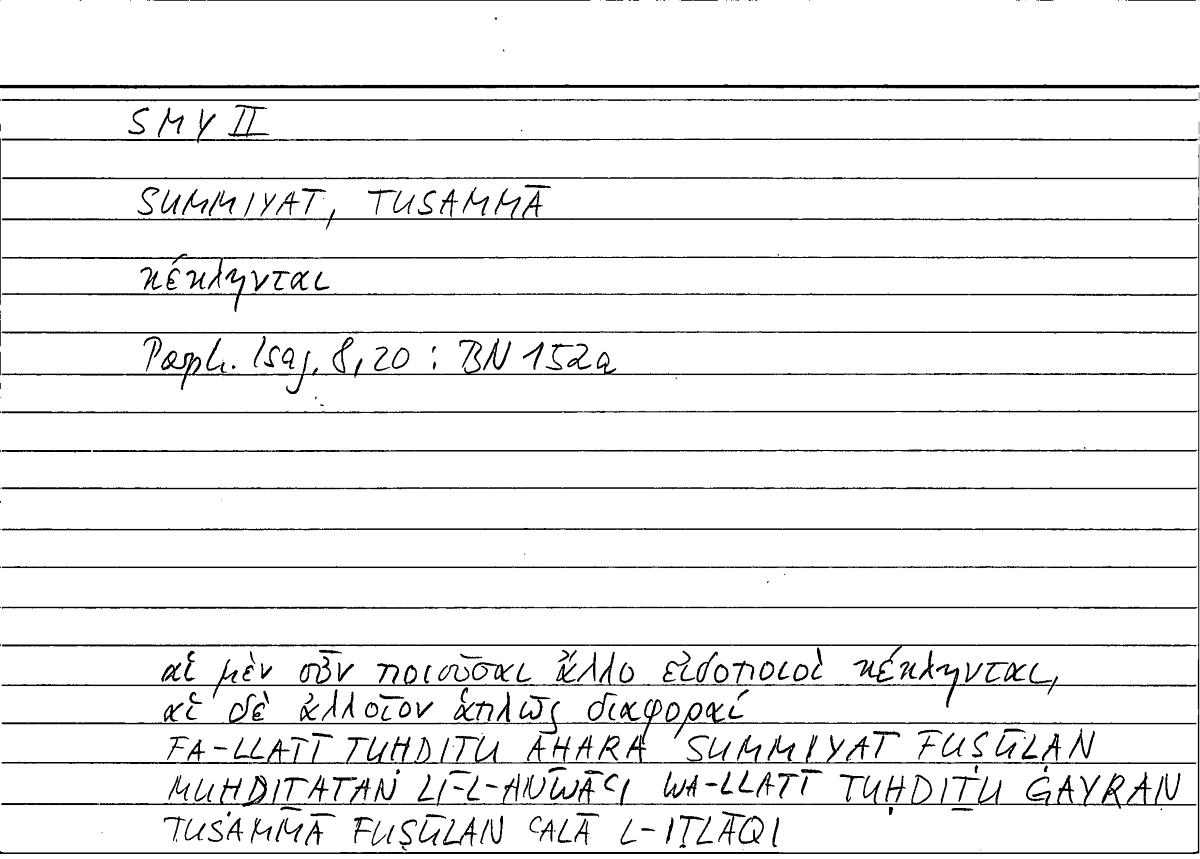 SMY II
SUMMIYAT, TUSAMMĀ
κέκληνται
Porph. Isag. 8,20 : BN 152a
αἱ μὲν οὖν ποιοῦσαι ἄλλο εἰδοποιοὶ κέκληνται,
αἱ δὲ ἀλλοῖον ἁπλῶς διαφοραί
FA-LLATĪ TUHDITU ĀHARA SUMMIYAT FUṢŪLAN
MUHDITATAN LI-L-ANWĀʿI WA-LLATĪ TUḤDIṮU ĠAYRAN
TUSAMMĀ FUṢŪLAN ʿALĀ L-IṬLĀQI